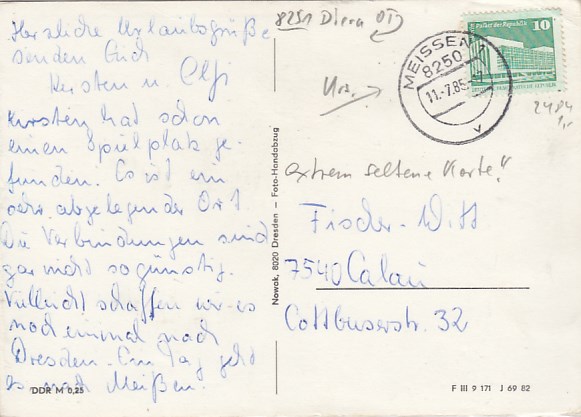 Herzliche Urlaubsgrüße
senden Euch
Kersten u. Olf
Kersten hat schon
einen Spielplatz ge-
funden. Es ist ein
sehr abgelegender Ort.
Die Verbindungen sind
gar nicht so günstig.
Vielleicht schaffen wir es
noch einmal nach
Dresden. Ein Tag geht
es nach Meißen.
DDR M 0,25
Nowak, 8020 Dresden — Foto-Handabzug
8251 Diera OT
MEISSEN 1
8250
11.-7.85
v
Palast der Republik 10
DEUTSCHE DEMOKRATISCHE REPUBLIK
2484
extrem seltene Karte!"
Fischer-Witt
7540 Calau
Cottbuserstr. 32
F III 9 171 J 69 82